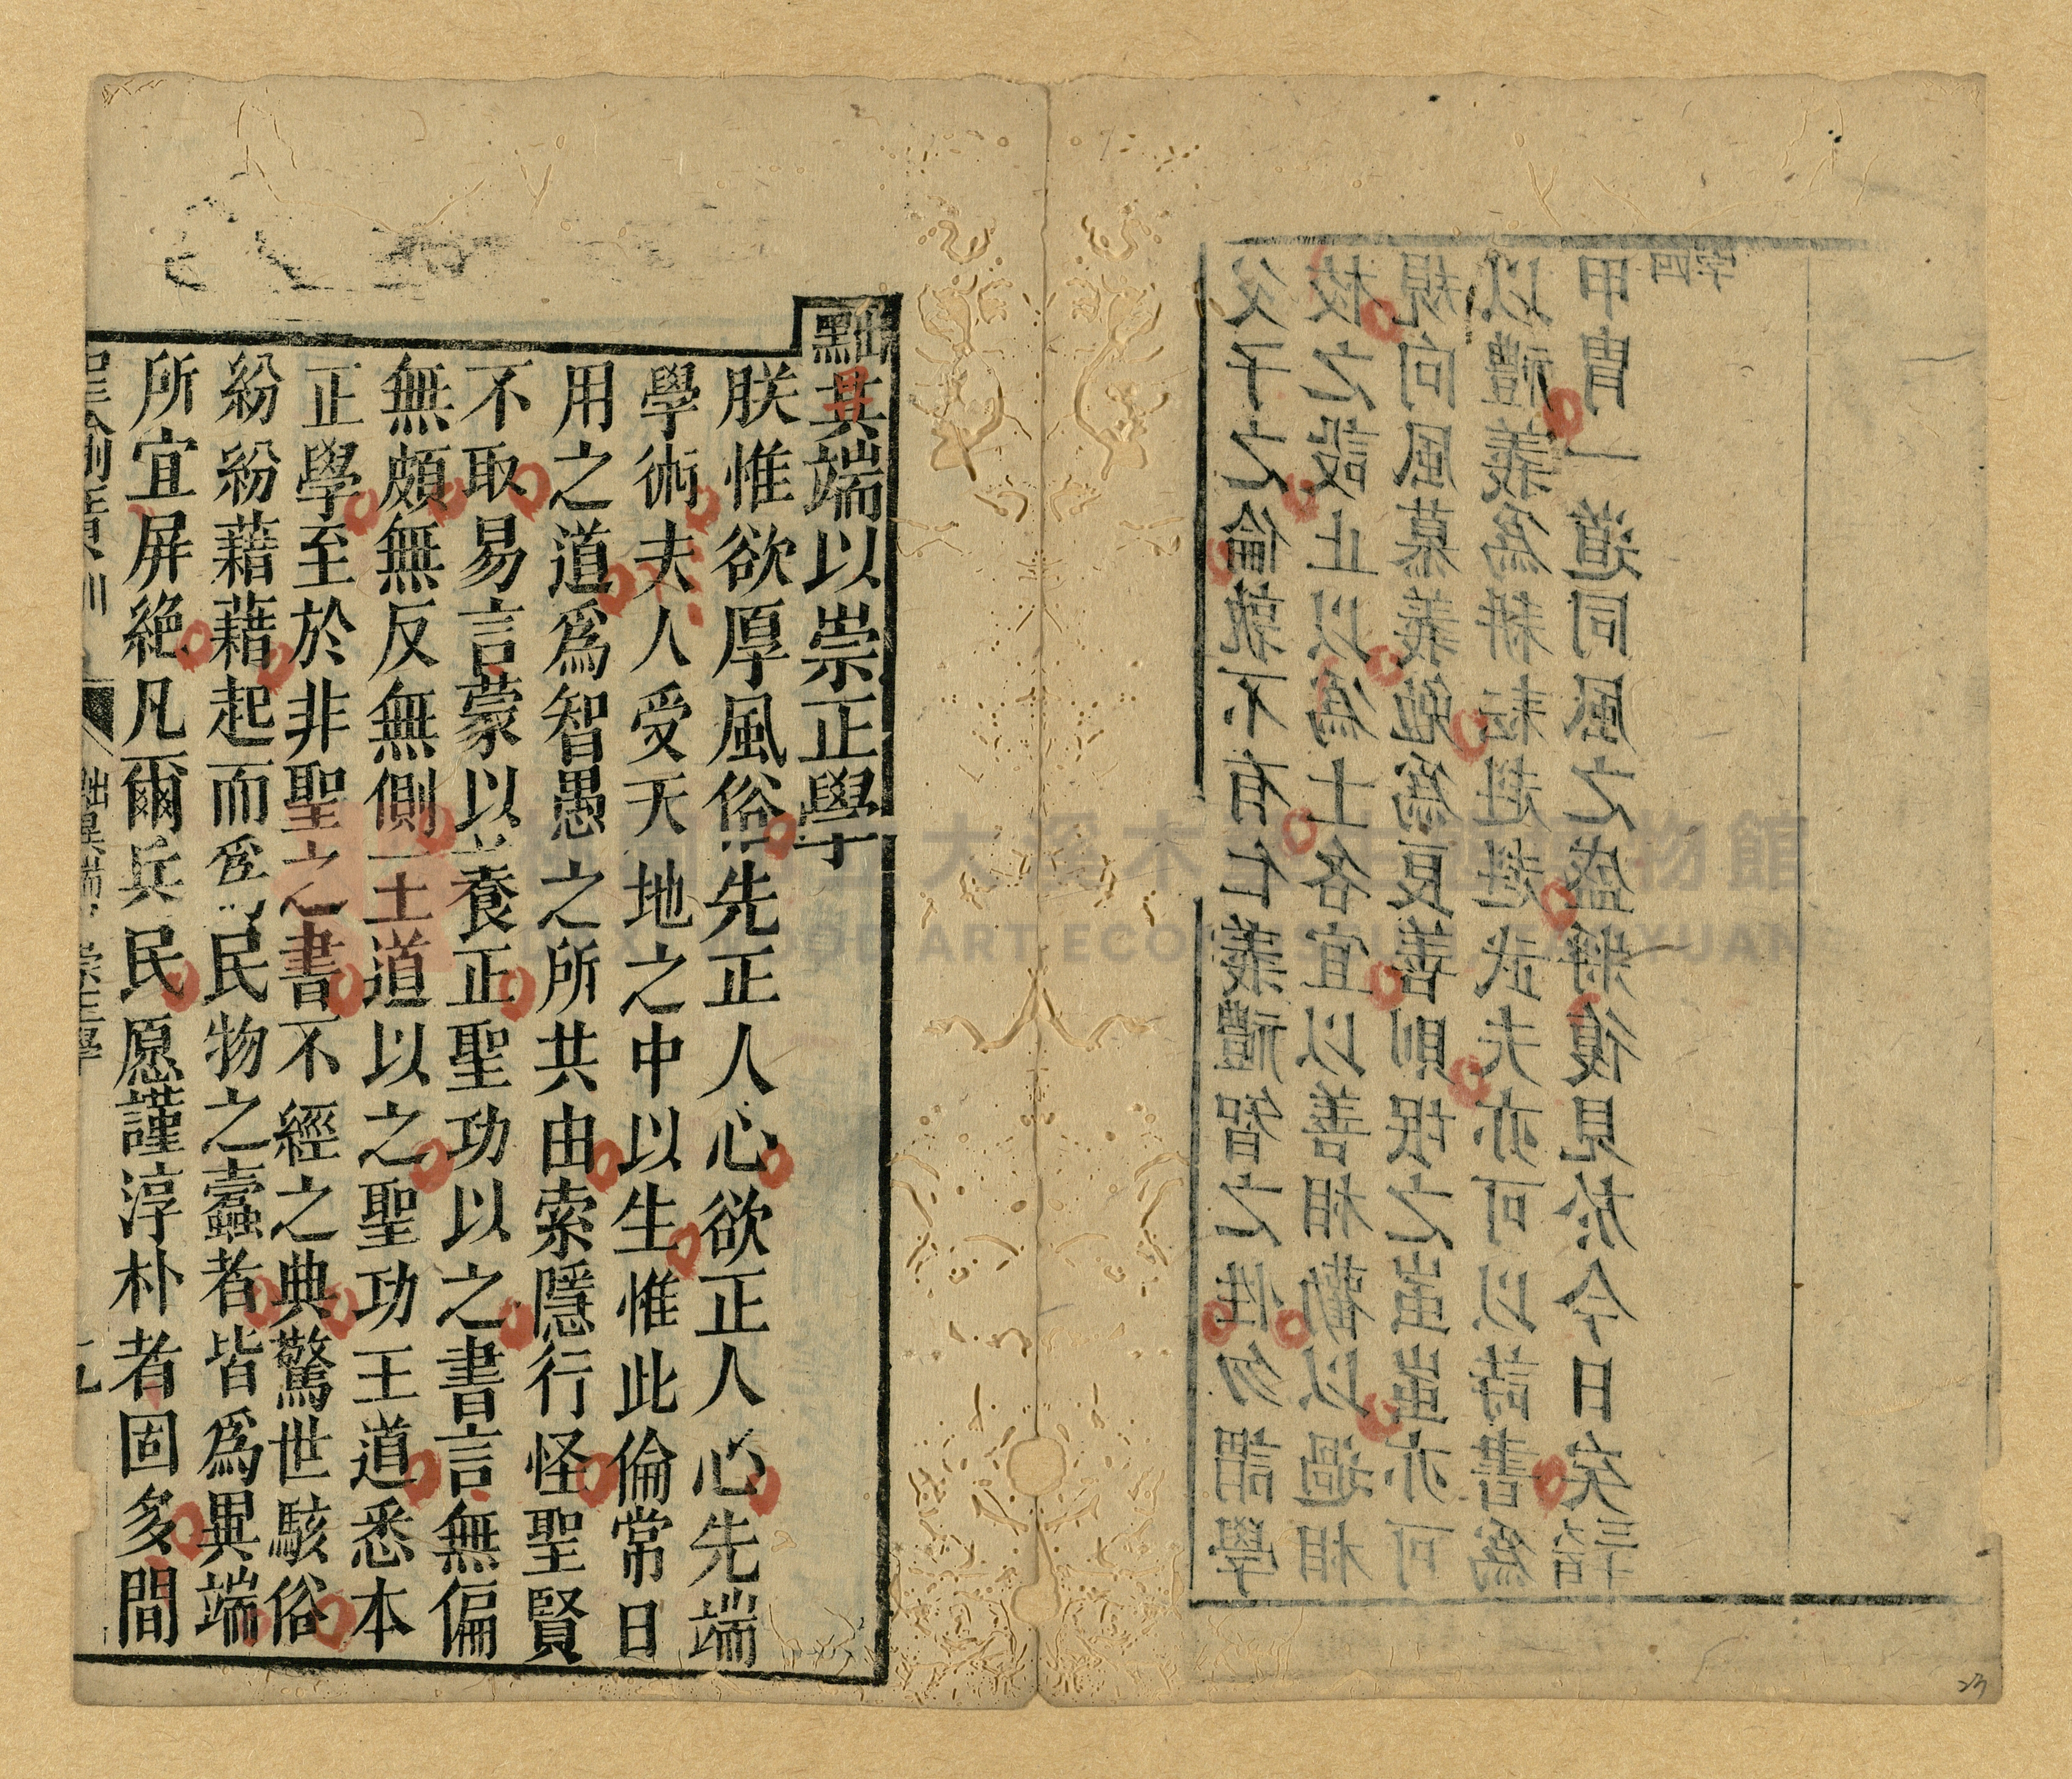 父子之倫孰不有仁義禮智之性勿謂學
校之設止以爲士各宜以善相勸以過相
規向風慕義勉爲良善則氓之蚩蚩亦可
以禮義爲耕耘赳赳武夫亦可以詩書爲
甲冑一道同風之盛將復見於今日矣
四字
黜異端以崇正學
朕惟欲厚風俗先正人心欲正人心先端
學術夫人受天地之中以生惟此倫常日
用之道爲智愚之所共由索隱行怪聖賢
不取易言蒙以養正聖功以之書言無偏
無頗無反無側王道以之聖功王道悉本
正學至於非聖之書不經之典驚世駭俗
紛紛藉藉起而爲民物之蠹者皆爲異端
所宜屏絶凡爾兵民愿謹淳朴者固多間
聖諭廣訓 黜異端 崇正學
大溪木 物館
ART ECO YUAN
23